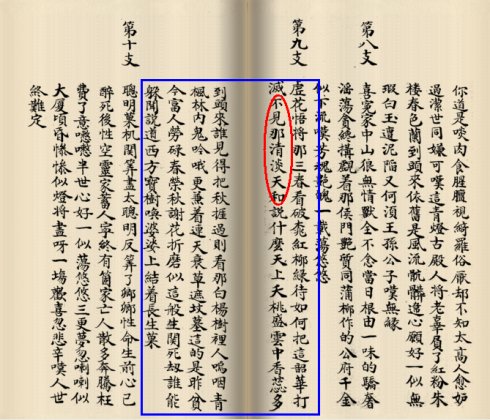 你道是啖肉食腥膻視綺羅俗厭却不知太高人愈妬
過潔世同嫌可嘆這青燈古殿人將老辜負了紅粉朱
樓春色闌到頭來依舊是風流骯髒違心願好一似無
瑕白玉遭泥陷又何須王孫公子嘆無緣
第八支
喜冤家中山狼無情獸全不念當日根由一味的驕奢
淫蕩貪搆觀着那侯門艷質同蒲柳作的公府千金
似下流嘆芳魂艷魄一載蕩悠悠
第九支
虛花悟將那三春看破桃紅柳綠待如何把這韶華打
滅不見那清淡天和說什麼天上夭桃盛雲中香蕊多
到頭來誰見得把秋捱過則看那白楊樹裡人嗚咽青
楓林內鬼吟哦更兼着連天衰草遮坟墓這的是昨貧
今富人勞碌春榮秋謝花折磨似這般生関死刼誰能
躲聞說道西方寶樹喚婆娑上結着長生菓
第十支
聰明菓機関算盡太聰明反算了卿卿性命生前心已
碎死後性空靈家富人寧終有個家亡人散多奔騰枉
費了意懸懸半世心好一似蕩悠悠三更夢忽喇喇似
大厦傾昏慘慘似燈將盡呀一場歡喜忽悲辛嘆人世
終難定